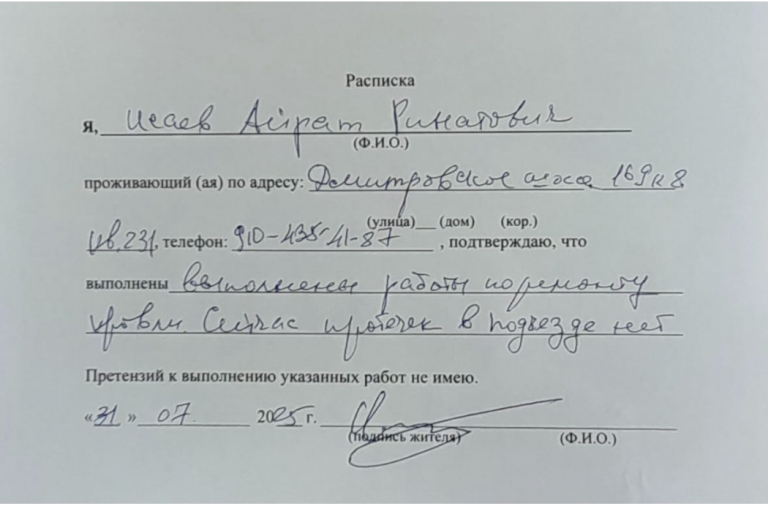 Расписка
Я, Исаев Айрат Ринатович
(Ф.И.О.)
проживающий (ая) по адресу: Дмитровское шоссе 169 к 8
(улица) (дом) (кор.)
кв. 231, телефон: 910-435-41-87, подтверждаю, что
выполнены выполнены работы по ремонту
кровли. Сейчас протечек в подъезде нет
Претензий к выполнению указанных работ не имею.
«31» 07 2025 г.
(подпись жителя) (Ф.И.О.)